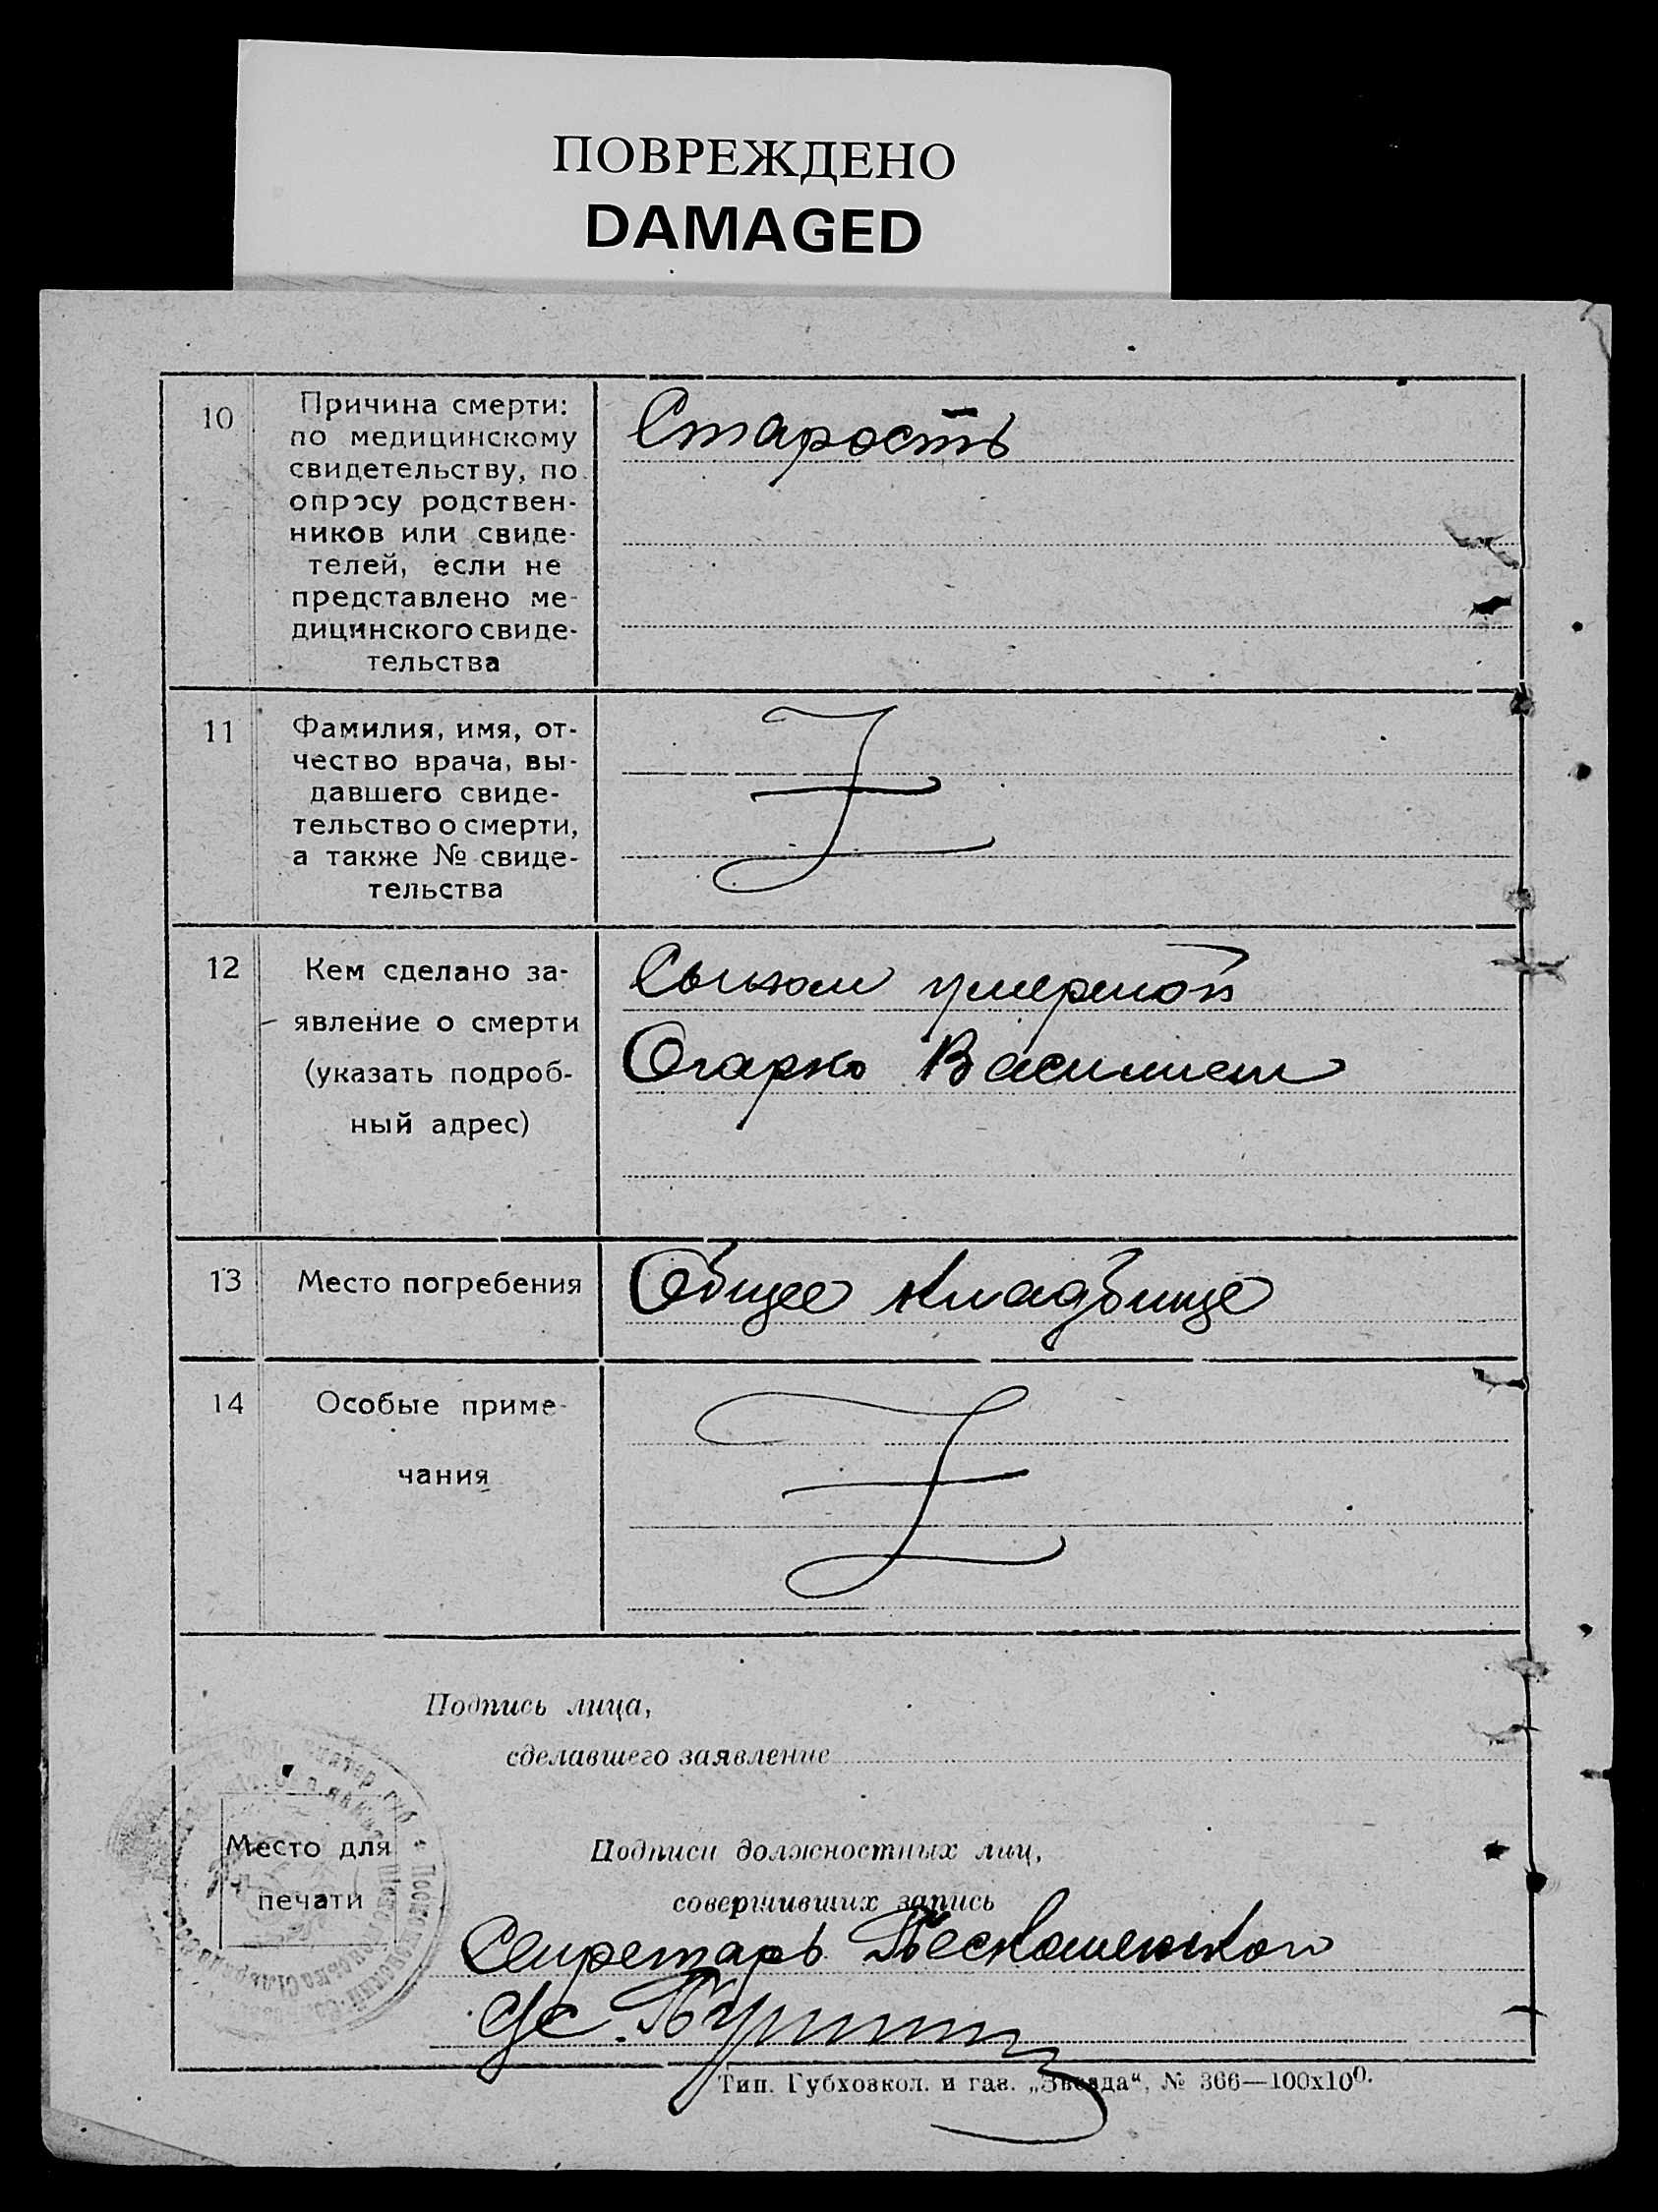 ПОВРЕЖДЕНО
DAMAGED
10
Причина смерти:
по медицинскому
свидетельству, по
опросу родствен-
ников или свиде-
телей, если не
представлено ме-
дицинского свиде-
тельства
Старость
11
Фамилия, имя, от-
чество врача, вы-
давшего свиде-
тельство о смерти,
а также № свиде-
тельства
12
Кем сделано за-
явление о смерти
(указать подроб-
ный адрес)
Сыном умершой
Огарко Василием
13
Место погребения
Общее кладбище
14
Особые приме-
чания
Подпись лица,
сделавшего заявление
Место для
печати
Подписи должностных лиц,
совершивших запись
Секретарь
Тип. Губхозкол. и газ. „Звезда“, № 366—100х100.